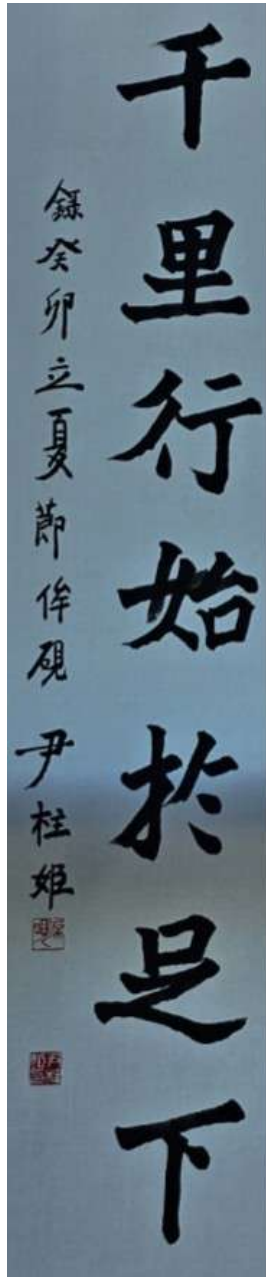 千里行始於足下
錄癸卯立夏節侔硯 尹柱姬